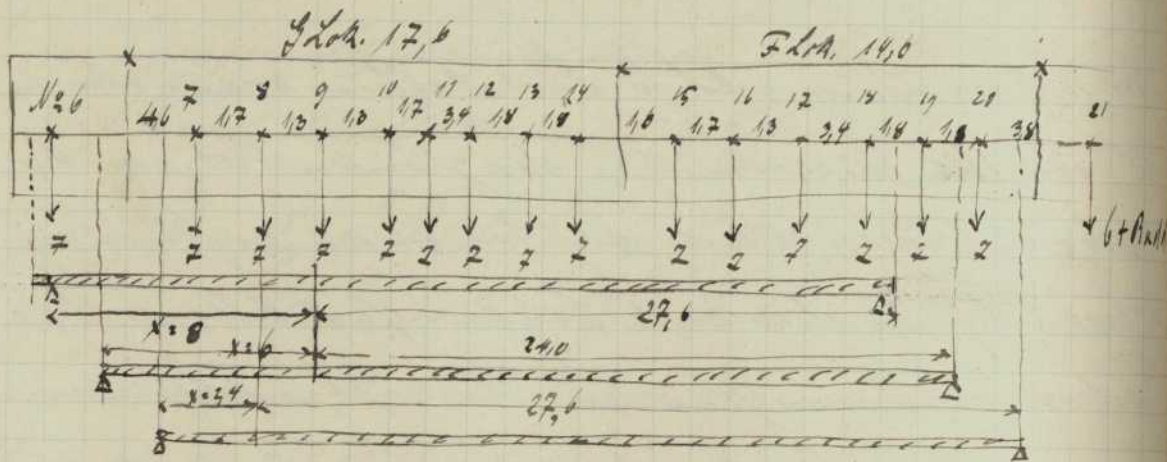 G Lok. 17,6 F Lok. 14,0
No 6 7 8 9 10 11 12 13 14 15 16 17 18 19 20 21
4,6 1,7 1,3 1,3 1,7 3,4 1,8 1,8 1,8 1,7 1,3 3,4 1,8 1,8 3,8
7 7 7 7 7 7 7 7 7 7 7 7 7 7 7
27,6
x = 8
x = 6 24,0
x = 2,4 27,6